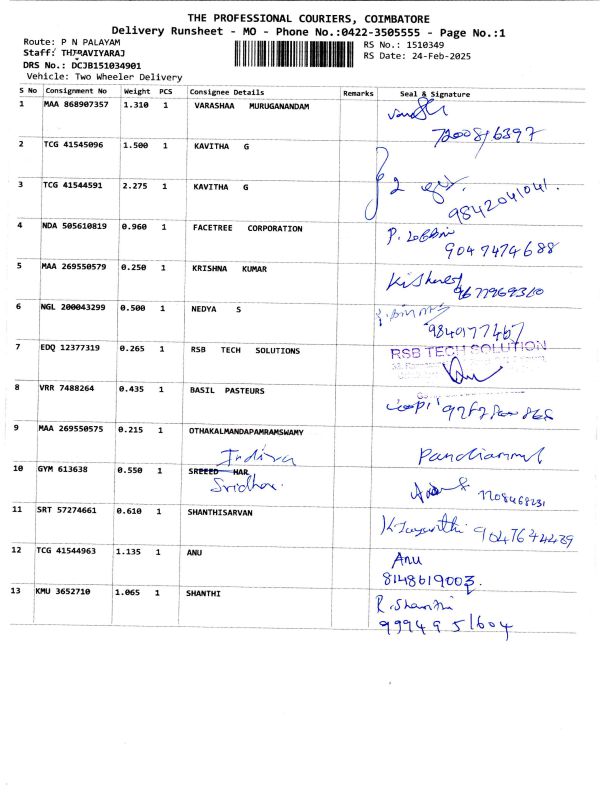 THE PROFESSIONAL COURIERS, COIMBATORE
Delivery Runsheet - MO - Phone No.:0422-3505555 - Page No.:1
Route: P N PALAYAM RS No.: 1510349
Staff: THIRAVIYARAJ RS Date: 24-Feb-2025
DRS No.: DCJB151034901
Vehicle: Two Wheeler Delivery
S No Consignment No Weight PCS Consignee Details Remarks Seal & Signature
1 MAA 868907357 1.310 1 VARASHAA MURUGANANDAM
7200816397
2 TCG 41545096 1.500 1 KAVITHA G
3 TCG 41544591 2.275 1 KAVITHA G 2
9842041041.
4 NDA 505610819 0.960 1 FACETREE CORPORATION P.
9047474688
5 MAA 269550579 0.250 1 KRISHNA KUMAR Kishore
9677969310
6 NGL 200043299 0.500 1 NEDYA S
9840177467
7 EDQ 12377319 0.265 1 RSB TECH SOLUTIONS RSB TECH SOLUTION
8 VRR 7488264 0.435 1 BASIL PASTEURS
9 MAA 269550575 0.215 1 OTHAKALMANDAPAMRAMSWAMY
Indira Pandiammal
10 GYM 613638 0.550 1 SREEED HAR
Sridhar. 7708468231
11 SRT 57274661 0.610 1 SHANTHISARVAN K. Jayanthi 9047644439
12 TCG 41544963 1.135 1 ANU Anu
8148619003.
13 KMU 3652710 1.065 1 SHANTHI R. Shanthi
9994951604